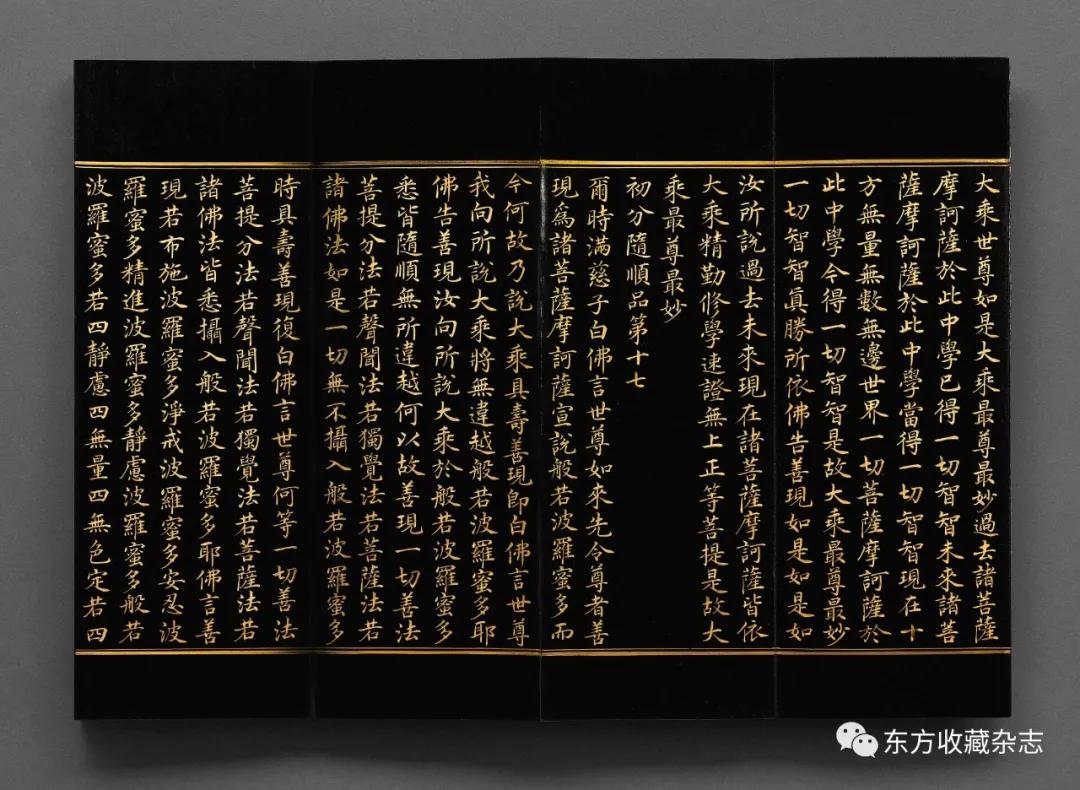 大乘世尊如是大乘最尊最妙過去諸菩薩
摩訶薩於此中學已得一切智智未來諸菩
薩摩訶薩於此中學當得一切智智現在十
方無量無數無邊世界一切菩薩摩訶薩於
此中學今得一切智智是故大乘最尊最妙
一切智智真勝所依佛告善現如是如是如
汝所說過去未來現在諸菩薩摩訶薩皆依
大乘精勤修學速證無上正等菩提是故大
乘最尊最妙
初分隨順品第十七
爾時滿慈子白佛言世尊如來先令尊者善
現為諸菩薩摩訶薩宣說般若波羅蜜多而
今何故乃說大乘具壽善現即白佛言世尊
我向所說大乘將無違越般若波羅蜜多耶
佛告善現汝向所說大乘於般若波羅蜜多
悉皆隨順無所違越何以故善現一切善法
菩提分法若聲聞法若獨覺法若菩薩法若
諸佛法如是一切無不攝入般若波羅蜜多
時具壽善現復白佛言世尊何等一切善法
菩提分法若聲聞法若獨覺法若菩薩法若
諸佛法皆悉攝入般若波羅蜜多耶佛言善
現若布施波羅蜜多淨戒波羅蜜多安忍波
羅蜜多精進波羅蜜多靜慮波羅蜜多般若
波羅蜜多若四靜慮四無量四無色定若四
东方收藏杂志